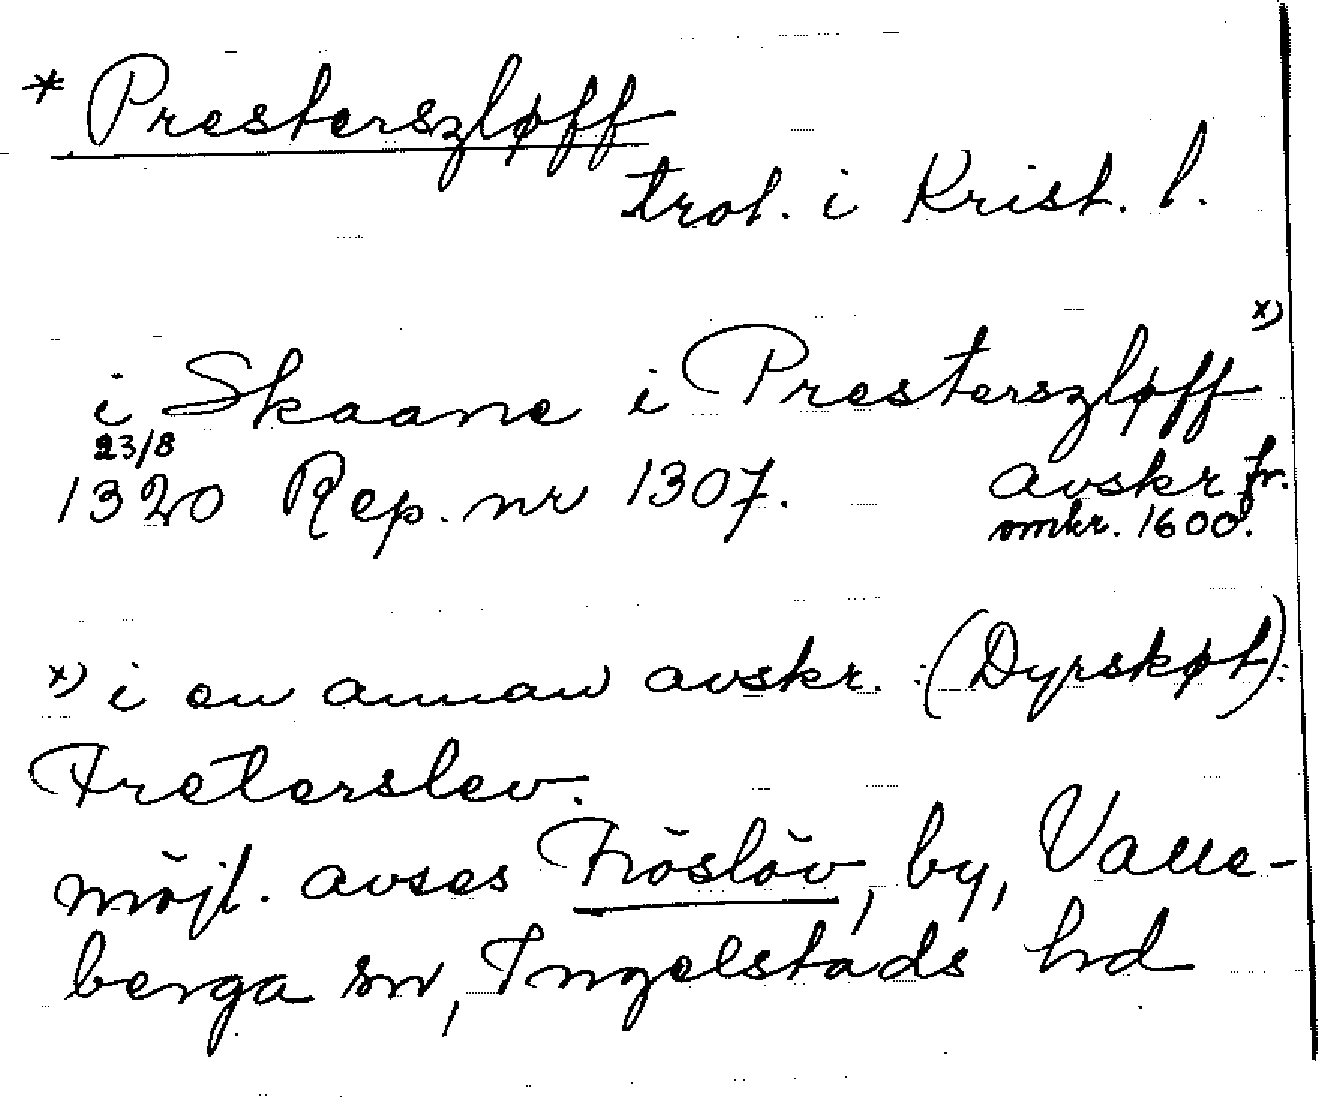 * Presterszløff
trol. i Krist. l.
i Skaane i Presterszløff x)
23/8
1320 Rep. nr 1307. avskr. fr.
omkr. 1600.
x) i en annan avskr. (Dyrskøt):
Freterslev.
möjl. avses Fröslöv, by, Valle-
berga sn, Ingelstads hd